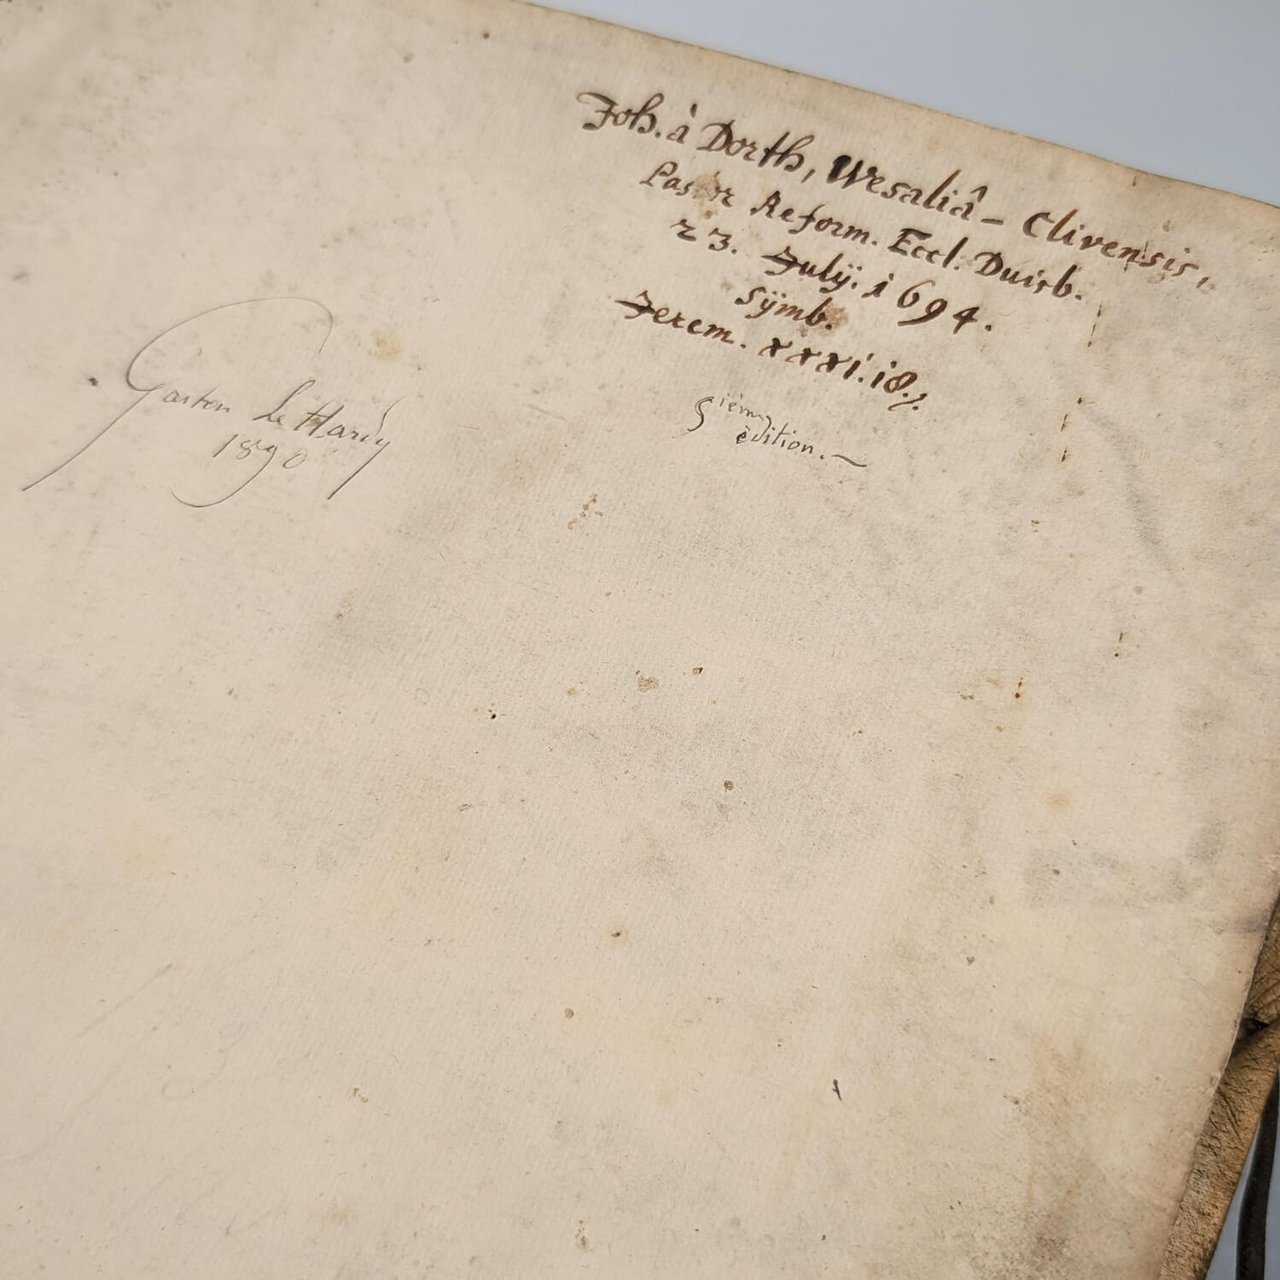 Joh. à Dorth, Wesaliâ - Clivensis,
Pastor Reform. Eccl. Duisb.
23. Julÿ. 1694.
Sÿmb.
Jerem. XXXI. 18.
5ième
édition. —
Gaston Le Hardy
1890